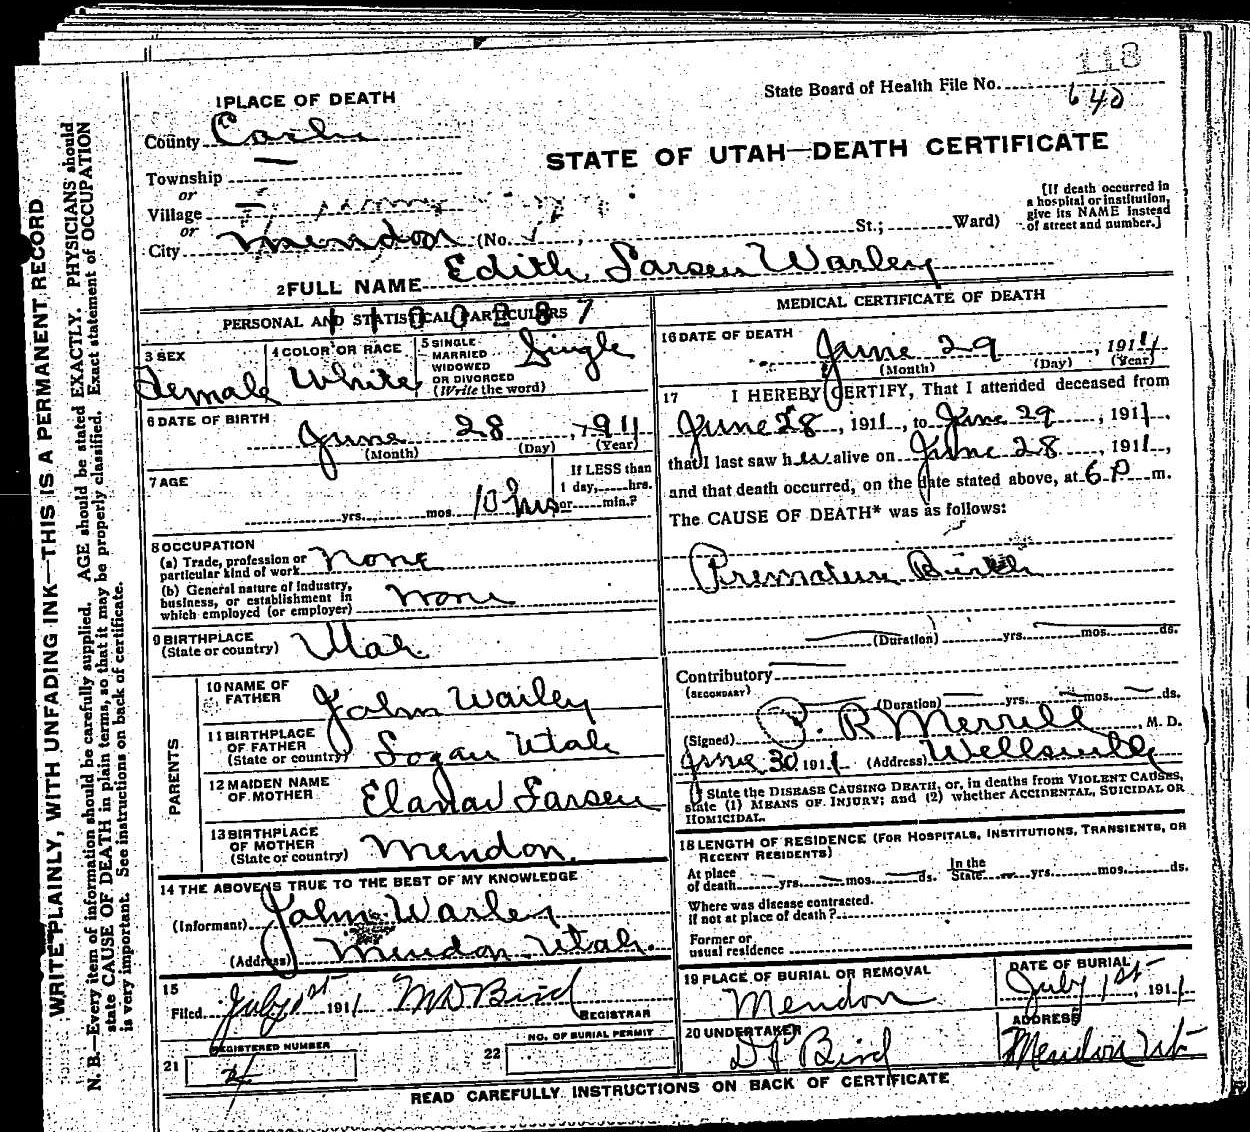 WRITE PLAINLY, WITH UNFADING INK—THIS IS A PERMANENT RECORD
N. B.—Every item of information should be carefully supplied. AGE should be stated EXACTLY. PHYSICIANS should
state CAUSE OF DEATH in plain terms, so that it may be properly classified. Exact statement of OCCUPATION
is very important. See instructions on back of certificate.
118
State Board of Health File No. 640
1 PLACE OF DEATH
County Cache
STATE OF UTAH—DEATH CERTIFICATE
Township
or
Village
or
City Mendon (No. , St.; Ward)
[If death occurred in
a hospital or institution,
give its NAME instead
of street and number.]
2 FULL NAME Edith Larsen Warley
1100287
PERSONAL AND STATISTICAL PARTICULARS
3 SEX
Female
4 COLOR OR RACE
White
5 SINGLE
MARRIED
WIDOWED
OR DIVORCED
(Write the word)
Single
6 DATE OF BIRTH
June 28, 1911
(Month) (Day) (Year)
7 AGE
If LESS than
1 day, hrs.
yrs. mos. 10 hrs or min.?
8 OCCUPATION
(a) Trade, profession or
particular kind of work none
(b) General nature of industry,
business, or establishment in
which employed (or employer) none
9 BIRTHPLACE
(State or country) Utah
PARENTS
10 NAME OF
FATHER John Warley
11 BIRTHPLACE
OF FATHER
(State or country) Logan Utah
12 MAIDEN NAME
OF MOTHER Larsen
13 BIRTHPLACE
OF MOTHER
(State or country) Mendon.
14 THE ABOVE IS TRUE TO THE BEST OF MY KNOWLEDGE
(Informant) John Warley
(Address) Mendon Utah.
15
Filed July 1st 1911 M D Bird
REGISTRAR
21 REGISTERED NUMBER
4
22 NO. OF BURIAL PERMIT
MEDICAL CERTIFICATE OF DEATH
16 DATE OF DEATH
June 29, 1911
(Month) (Day) (Year)
17 I HEREBY CERTIFY, That I attended deceased from
June 28, 1911, to June 29, 1911,
that I last saw her alive on June 28, 1911,
and that death occurred, on the date stated above, at 6 P m.
The CAUSE OF DEATH* was as follows:
Premature Birth
(Duration) yrs. mos. ds.
Contributory
(SECONDARY)
(Duration) yrs. mos. ds.
(Signed) P. R Merrill, M. D.
June 30 1911 (Address) Wellsville
* State the DISEASE CAUSING DEATH, or, in deaths from VIOLENT CAUSES,
state (1) MEANS OF INJURY; and (2) whether ACCIDENTAL, SUICIDAL OR
HOMICIDAL.
18 LENGTH OF RESIDENCE (FOR HOSPITALS, INSTITUTIONS, TRANSIENTS, OR
RECENT RESIDENTS)
At place
of death yrs. mos. ds.
In the
State yrs. mos. ds.
Where was disease contracted,
if not at place of death?
Former or
usual residence
19 PLACE OF BURIAL OR REMOVAL
Mendon
DATE OF BURIAL
July 1st, 1911
20 UNDERTAKER
Bird
ADDRESS
Mendon Ut
READ CAREFULLY INSTRUCTIONS ON BACK OF CERTIFICATE